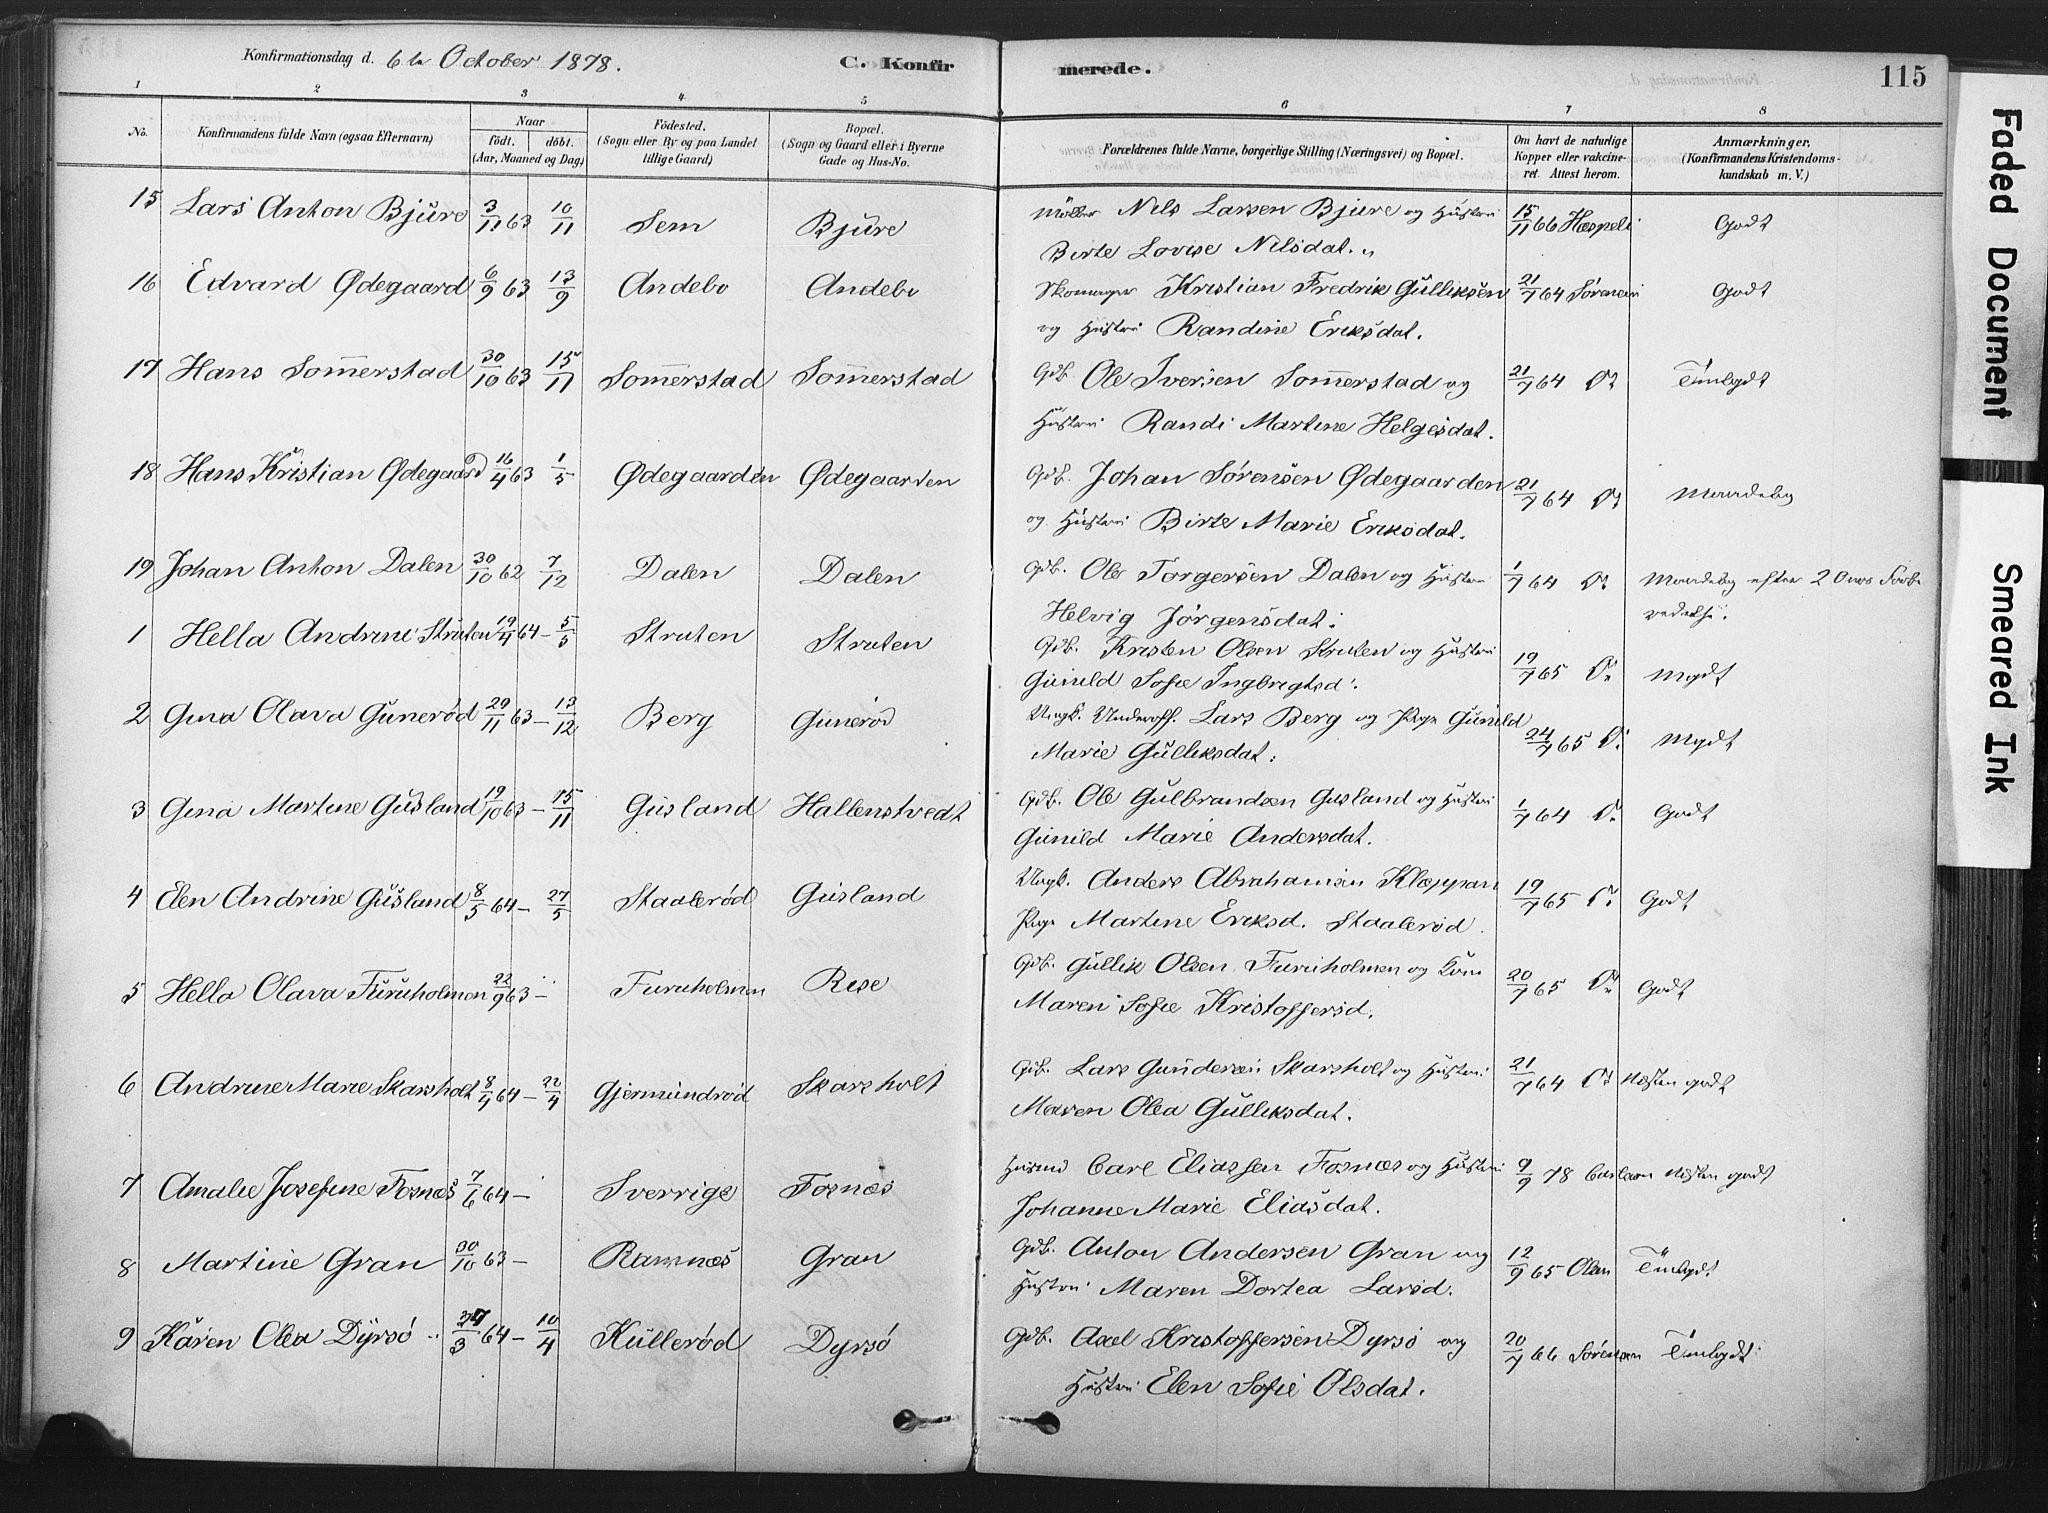 Konfirmationsdag d. 6te October 1878.
C. Konfirmerede.
115
1 2 3 4 5 6 7 8
No. Konfirmandens fulde Navn (ogsaa Efternavn) Naar født. døbt. (Aar, Maaned og Dag) Fødested. (Sogn eller By og paa Landet tillige Gaard) Bopæl. (Sogn og Gaard eller i Byerne Gade og Hus-No. Forældrenes fulde Navne, borgerlige Stilling (Næringsvei) og Bopæl. Om havt de naturlige Kopper eller vakcineret. Attest herom. Anmærkninger. (Konfirmandens Kristendomskundskab m. V.)
15 Lars Anton Bjure 3/11 63 10/11 Sem Bjure Møller Nils Larsen Bjure og Hustru 15/11 66 Godt
Birte Lovise Nilsdat.
16 Edvard Ødegaard 6/9 63 13/9 Andebo Andebo Skomager Kristian Fredrik Gulliksen 21/7 64 Sørensen Godt
og Hustru Randine Eriksdat.
17 Hans Sommerstad 30/10 63 15/11 Sommerstad Sommerstad Gdb. Ole Iversen Sommerstad og 21/7 64 Do Temlgdt
Hustru Randi Martine Helgesdat.
18 Hans Kristian Ødegaard 16/4 63 1/5 Ødegaarden Ødegaarden Gdb. Johan Sørensen Ødegaarden 21/7 64 Do Maadelig
og Hustru Birte Marie Eriksdat.
19 Johan Anton Dalen 30/10 62 7/12 Dalen Dalen Gdb. Ole Torgersen Dalen og Hustru 1/7 64 Do Maadelig efter 2 Aars Forbe
Helvig Jørgensdat. redelse.
1 Hella Andrine Struten 19/4 64 - 5/5 Struten Struten Gdb. Kristen Olsen Struten og Hustru 19/7 65 Do Mgdt
Gunild Sofie Ingbrigtsd.
2 Gina Olava Gunerød 29/11 63 - 13/12 Berg Gunerød Ungk. Underoff. Lars Berg og Pige Gunild 24/7 65 Do Mgdt
Marie Gulliksdat.
3 Gina Martine Gusland 19/10 63 - 15/11 Gusland Hallenstvedt Gdb. Ole Gulbrandsen Gusland og Hustru 1/7 64 Do Godt
Gunild Marie Andersdat.
4 Elen Andrine Gusland 8/5 64 - 27/5 Staalerød Gusland Ungk. Anders Abrahamsen Kleppan 19/7 65 Do Godt
Pige Martine Eriksd. Staalerød.
5 Hella Olava Furuholmen 22/9 63 - Furuholmen Rise Gdb. Gullik Olsen Furuholmen og Kone 20/7 65 Do Godt
Maren Sofie Kristoffersd.
6 Andrine Marie Skarsholt 8/4 64 - 22/4 Gjermundrød Skarsholt Gdb. Lars Gundersen Skarsholt og Hustru 21/7 64 Do Næsten godt
Maren Olea Gulliksdat.
7 Amalie Josefine Fosnæs 7/6 64 - Sverrige Fosnæs Husmd Carl Eliassen Fosnæs og Hustru 9/9 78 Carlsen Næsten godt
Johanne Marie Eliasdat.
8 Martine Gran 30/10 63 - Ramnæs Gran Gdb. Anton Andersen Gran og 12/9 65 Olsen Temlgdt
Hustru Maren Dortea Larsd.
9 Karen Olea Dyrsø 24/3 64 - 10/4 Kullerød Dyrsø Gdb. Axel Kristoffersen Dyrsø og 20/7 66 Sørensen Temlgdt
Hustru Elen Sofie Olsdat.
Faded Document
Smeared Ink